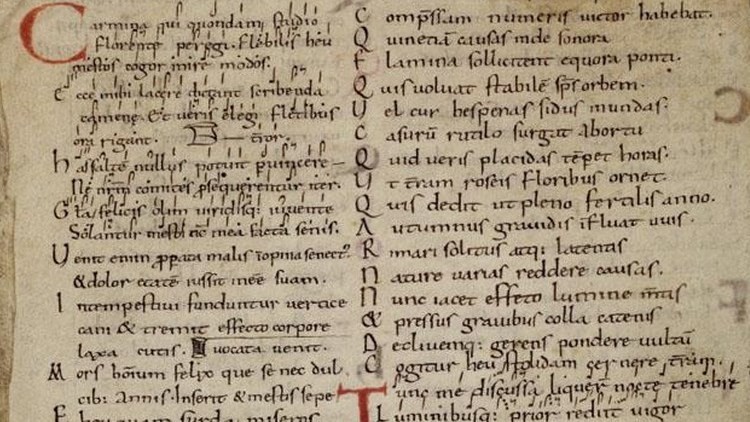 Carmina qui quondam studio
Florente peregi. Flebilis heu
mestos cogor inire modos.
Ecce mihi lacere dictant scribenda
camenę. Et veris elegi fletibus
ora rigant. ror.
has saltē nullus potuit pvincere
Ne nr̄m comites psequerentur iter.
Gl̄a felicis olim viridisq: iuvente
Solantur mesti nc mea fata senis.
Venit enim pperata malis inopina senect᾿
& dolor etatē iussit inee suam.
Intempestivi funduntur vertice
cani & tremit effecto corpore
laxa cutis. vocata venit.
Mors hōinum felix que se nec dul
cib: Annis. Inserit & mestis sepe
Eheu quam surda miseros
Comp̄ssam numeris victor habebat.
Quinetiā causas unde sonora
Flamina sollicitent equora ponti.
Quis voluat stabilē sp̄s orbem.
Vel cur hesperias sidus in undas.
Casurū rutilo surgat abortu
Quid veris placidas tēpet horas.
Ut t̄ram roseis floribus ornet.
Quis dedit ut pleno fertilis anno.
Autumnus gravidis īfluat uvis.
Rimari solitus atq; latentis
Nature varias reddere causas.
Nunc iacet effeto lumine m̄tis
& pressus gravibus colla catenis
Declivemq; gerens pondere vultū
Cogitur heu stolidam cernere t̄ram.
Tunc me discussa liquer̄ nocte tenebre
Luminibusq; prior rediit vigor